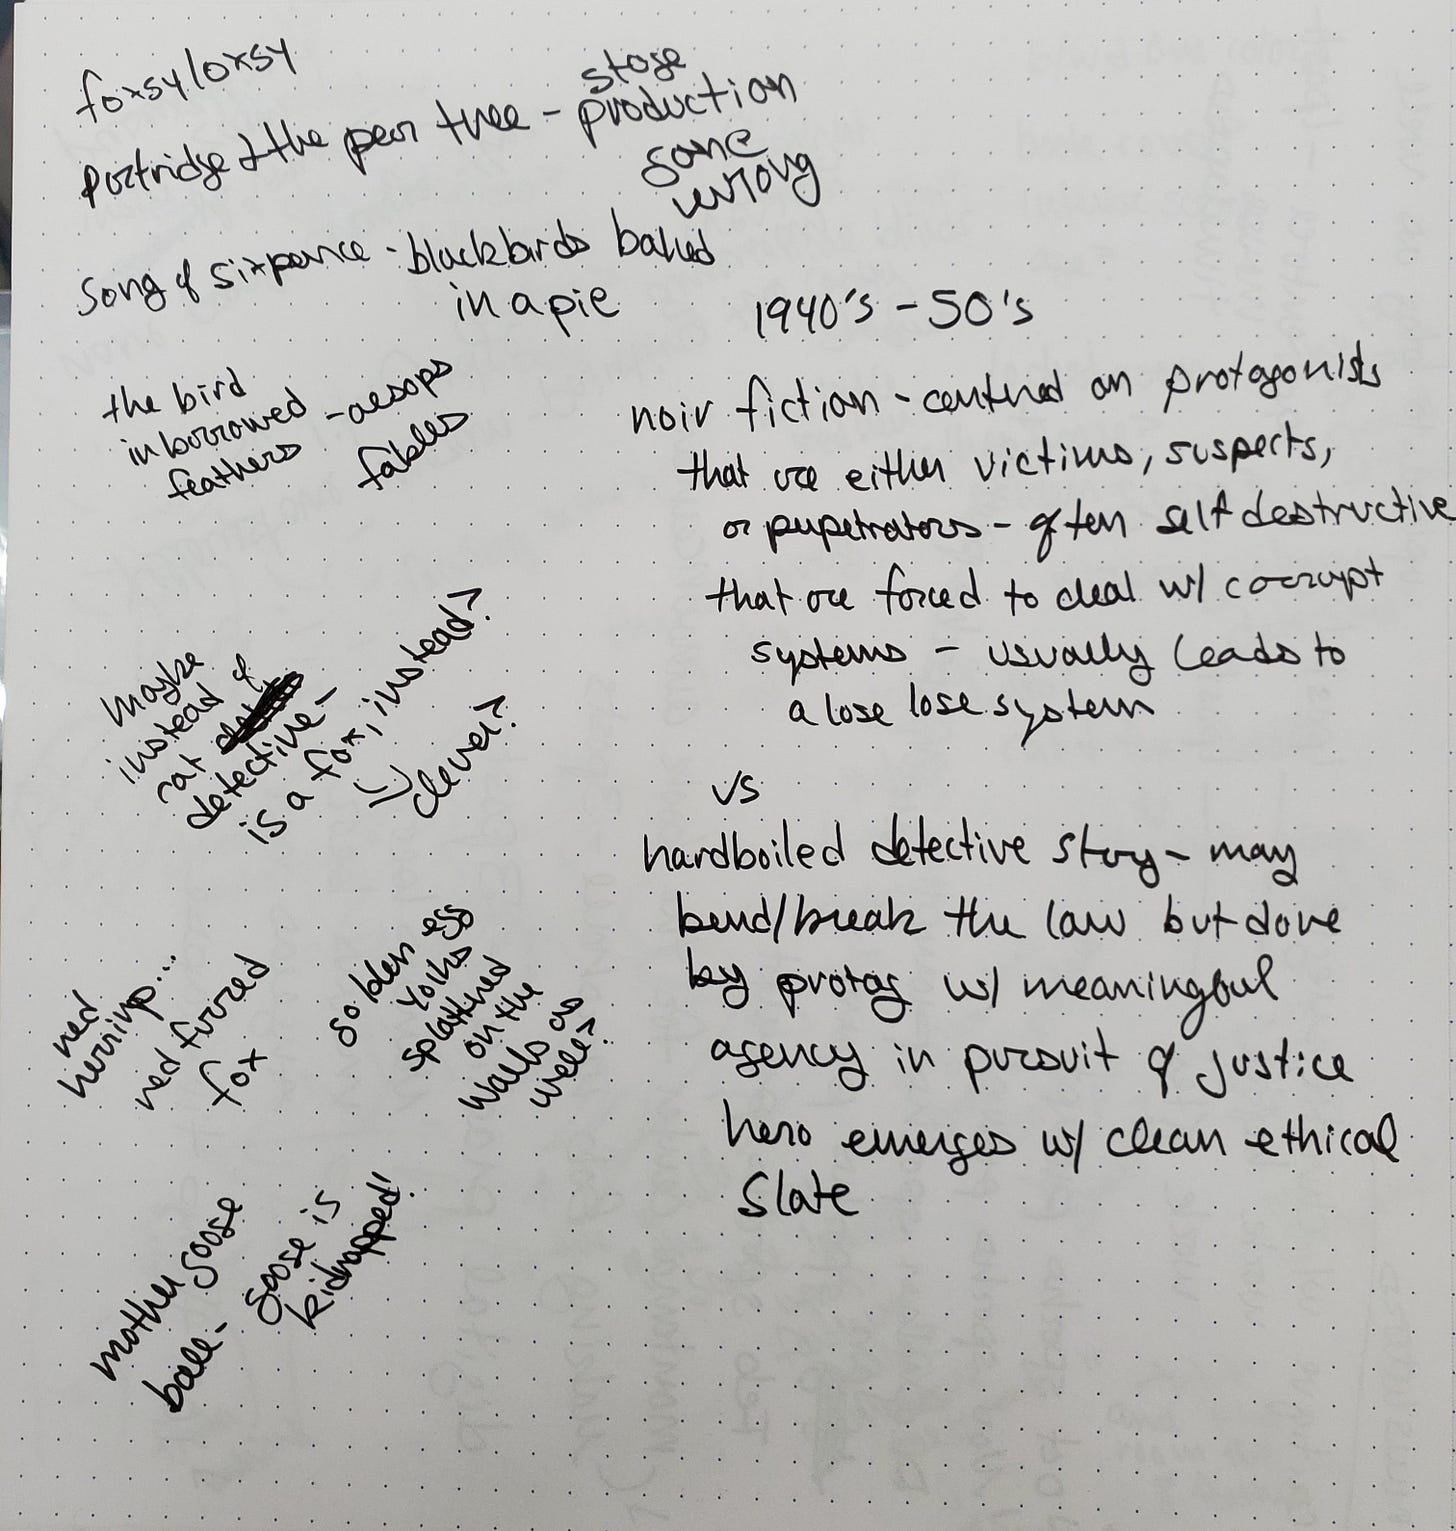 foxsyloxsy
partridge & the pear tree - stage
production
gone
wrong
song of sixpence - blackbirds baked
in a pie
the bird
in borrowed - aesops
feathers fables
1940's - 50's
noir fiction - centered on protagonists
that are either victims, suspects,
or perpetrators - often self destructive
that are forced to deal w/ corrupt
systems - usually leads to
a lose lose system
vs
hardboiled detective story - may
bend/break the law but done
by protag w/ meaningful
agency in pursuit of justice
hero emerges w/ clean ethical
slate
maybe
instead of
cat
detective -
is a fox, instead?
clever?
red
herring...
red furred
fox
golden egg
yolks
splattered
on the
walls as
well?
mother goose
ball - goose is
kidnapped!